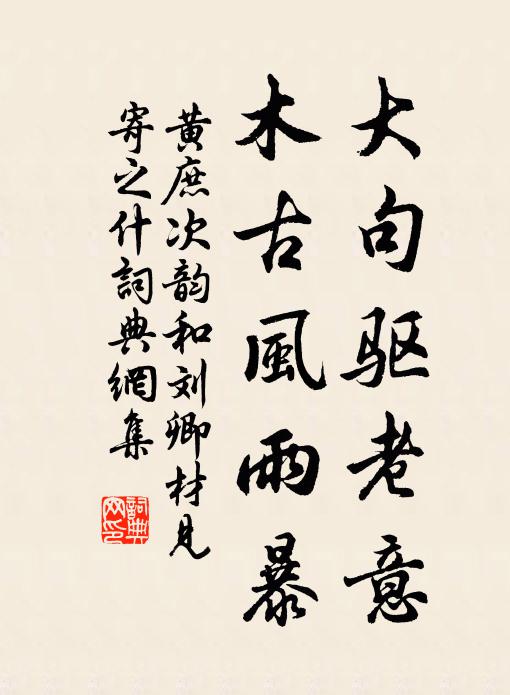 大句驱老意
木古風雨暴
黄庶次韵和刘卿材見
寄之什詞典網集
詞典網印